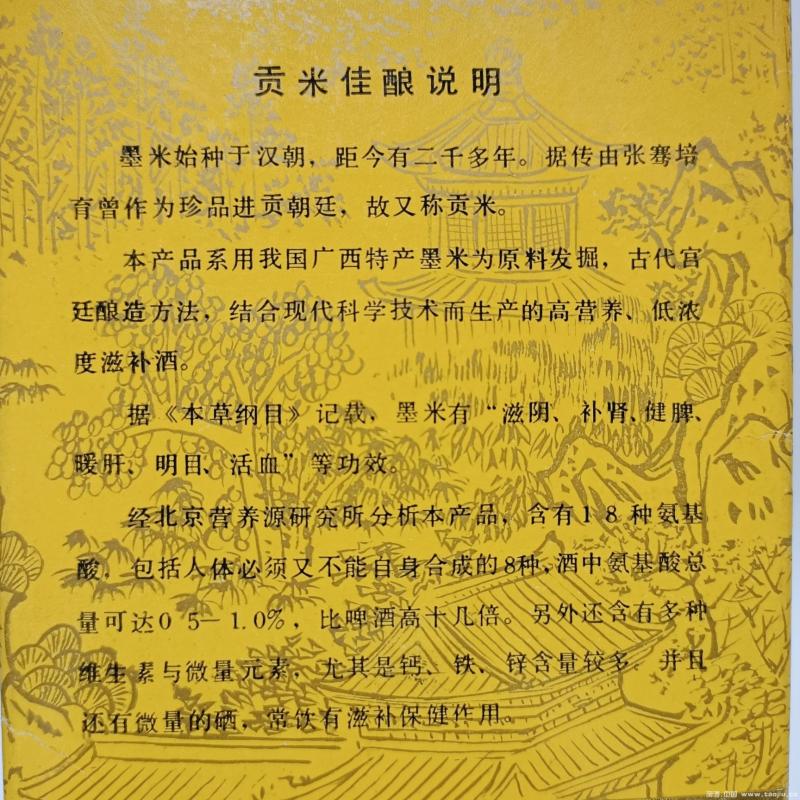 贡米佳酿说明
墨米始种于汉朝，距今有二千多年。据传由张骞培
育曾作为珍品进贡朝廷，故又称贡米。
本产品系用我国广西特产墨米为原料发掘，古代宫
廷酿造方法，结合现代科学技术而生产的高营养、低浓
度滋补酒。
据《本草纲目》记载，墨米有“滋阴、补肾、健脾、
暖肝、明目、活血”等功效。
经北京营养源研究所分析本产品，含有18种氨基
酸，包括人体必须又不能自身合成的8种，酒中氨基酸总
量可达0 5—1.0%，比啤酒高十几倍。另外还含有多种
维生素与微量元素，尤其是钙、铁、锌含量较多。并且
还有微量的硒，常饮有滋补保健作用。